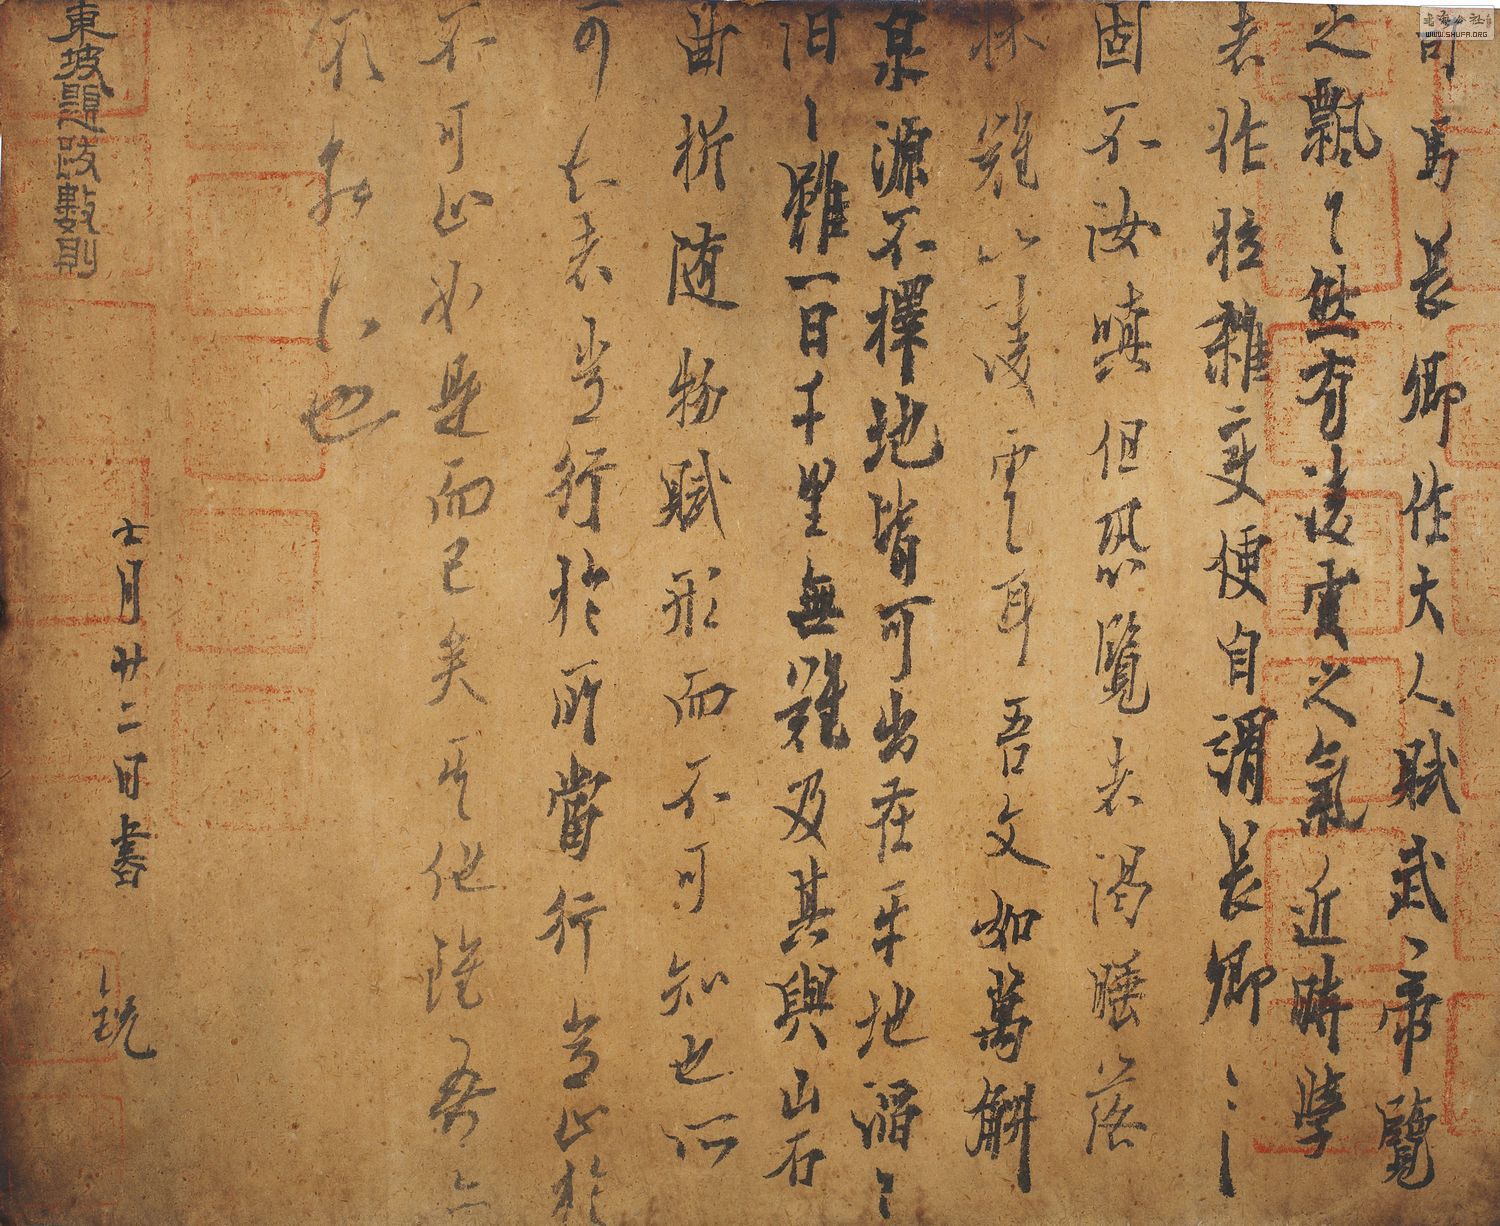 司馬長卿作大人賦武帝覽
之飄〻然有淩雲之氣近時學
者作拉雜變便自謂長卿〻〻
固不汝嗔但恐覽者渴睡落
床難以淩雲耳吾文如萬斛
泉源不擇地皆可出在平地滔〻
汩〻雖一日千里無難及其與山石
曲折随物賦形而不可知也所
可知者當行於所當行當止於
不可止如是而已矣其他雖吾亦
不能知也
十一月廿二日書
東坡題跋數則
書法公社
WWW.SHUFA.ORG